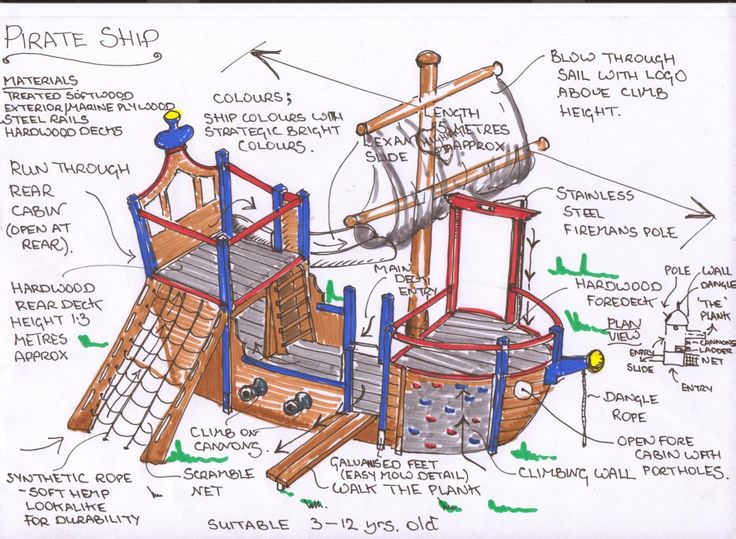 PIRATE SHIP
MATERIALS
TREATED SOFTWOOD
EXTERIOR/MARINE PLYWOOD
STEEL RAILS
HARDWOOD DECKS
COLOURS;
SHIP COLOURS WITH
STRATEGIC BRIGHT
COLOURS.
LENGTH
METRES
APPROX
BLOW THROUGH
SAIL WITH LOGO
ABOVE CLIMB
HEIGHT.
SLIDE
RUN THROUGH
REAR
CABIN
(OPEN AT
REAR).
STAINLESS
STEEL
FIREMANS POLE
HARDWOOD
REAR DECK
HEIGHT 1:3
METRES
APPROX
MAIN
DECK
ENTRY
HARDWOOD
FOREDECK
PLAN
VIEW
POLE
WALL
DANGLE
'THE'
PLANK
CANNONS
LADDER
NET
ENTRY
SLIDE
ENTRY
DANGLE
ROPE
OPEN FORE
CABIN WITH
PORTHOLES.
CLIMBING WALL
CLIMB ON
CANYONS.
SCRAMBLE
NET
GALVANISED FEET
(EASY MOW DETAIL)
WALK THE PLANK
SYNTHETIC ROPE
- SOFT HEMP
LOOKALIKE
FOR DURABILITY
SUITABLE 3-12 yrs. old